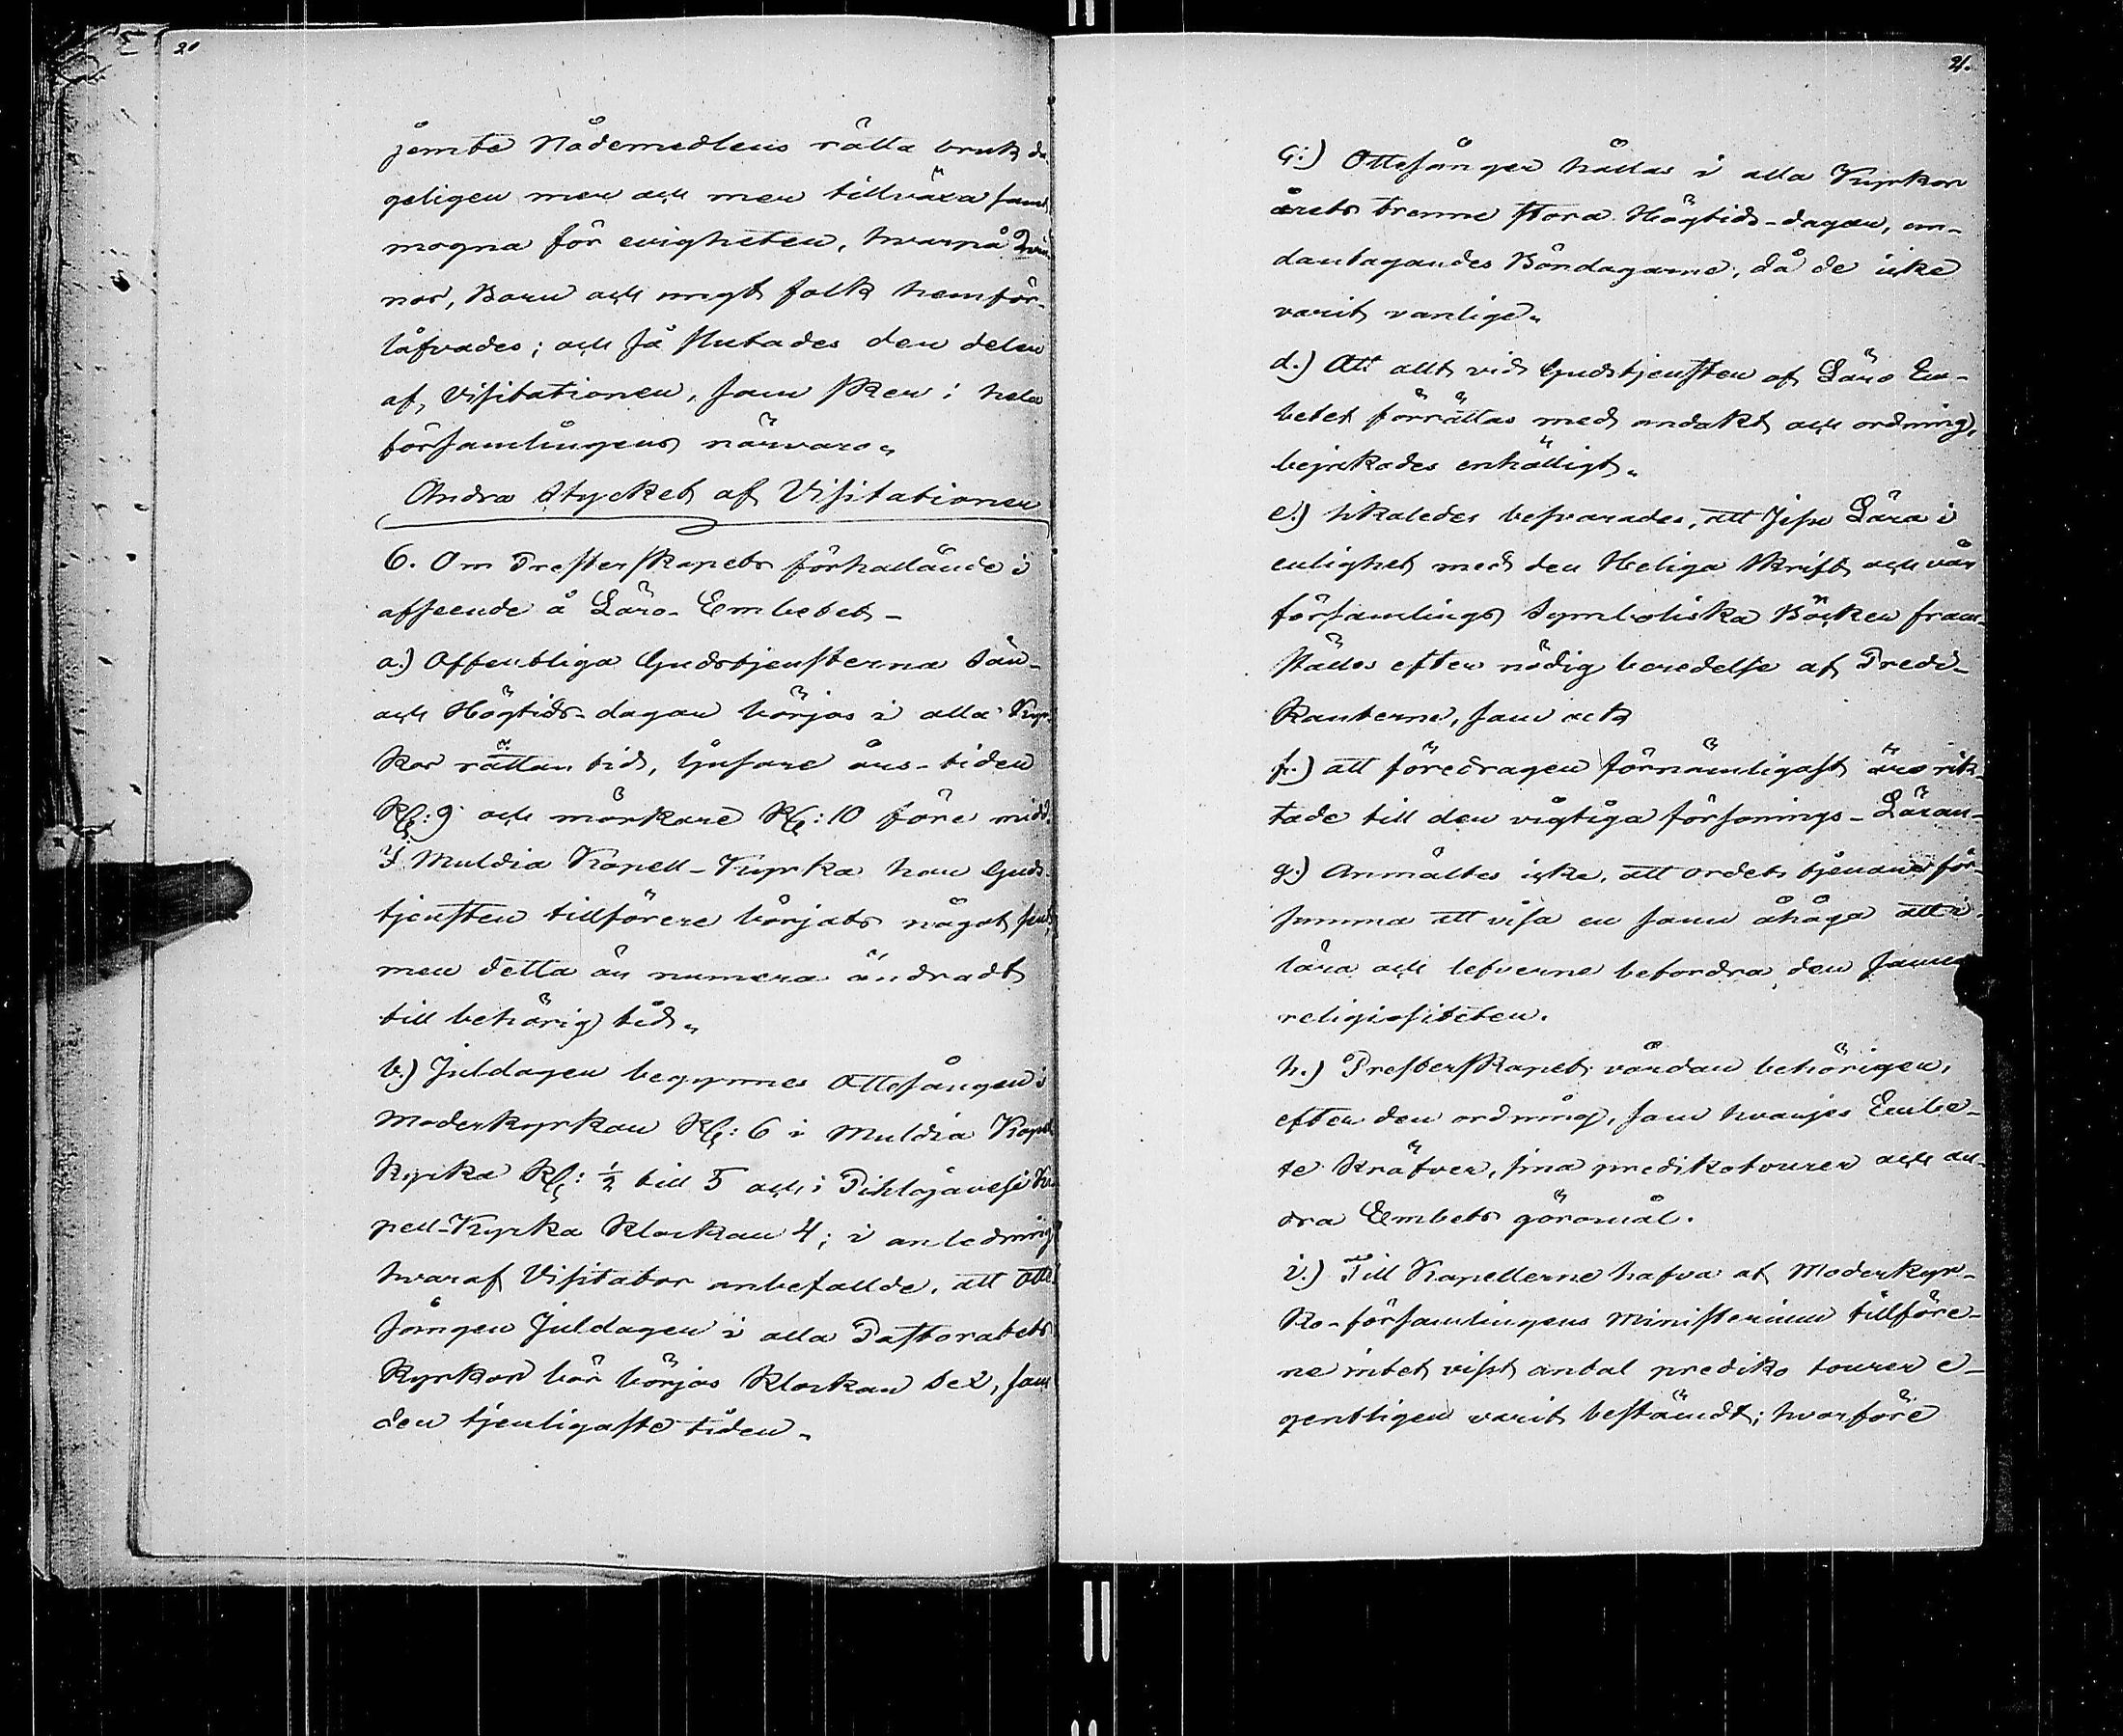 20
jemte Nådemedlens rätta bruk da
geligen mer och mer tillväxa samt
mogna för evigheten, hvarpå Qvin
nor, Barn och ungt folk hemför-
låfvades; och så slutades den delen
af Visitationen, som sker i hela
församlingens närvaro.
Andra Stycket af Visitationen
6. Om Presterskapets förhållande i
afseende å Läro-Embetet-
a.) Offentliga Gudstjensterna Sön-
och Högtids-dagar börjas i alla Kyr-
kor rättan tid, ljusare års-tiden
Kl: 9 och mörkare Kl: 10 före midd.
I Muldia Kapell-Kyrka har Guds
tjensten tillförene börjats något sent,
men detta är numera ändradt
till behörig tid.
b.) Juldagen begynnes Ottesången i
Moderkyrkan Kl: 6 i Muldia Kapell
Kyrka Kl: ½ till 5 och i Pihlajavesi Ka
pell-Kyrka Klockan 4; i anledning
hvaraf Visitator anbefallde, att Otte
sången Juldagen i alla Pastoratets
Kyrkor bör börjas Klockan sex, som
den tjenligaste tiden.
21.
c:) Ottesånger hållas i alla Kyrkor
årets trenne stora Högtids-dagar, un-
dantagandes Böndagarne, då de icke
varit vanlige.
d.) Att allt vid Gudstjensten af Läro Em-
betet förrättas med andakt och ordning,
bejakades enhälligt.
e.) likaledes besvarades, att Jesu Lära i
enlighet med den Heliga Skrift och vår
församlings Symboliska Böcker fram-
ställes efter nödig beredelse af Predi-
kanterne, som ock
f.) att föredragen förnämligast äro rik-
tade till den vigtiga försonings-Läran-
g.) Anmältes icke, att ordets tjenare för-
summa att visa en sann åhåga att i
lära och lefverne befordra den sanna
religiositeten.
h.) Presterskapet vårdar behörigen,
efter den ordning, som hvarjes Embe-
te kräfver, sina predikotourer och an-
dra Embets göromål.
i.) Till Kapellerne hafva af Moderkyr-
ko-församlingens Ministerium tillföre-
ne intet visst antal prediko tourer e-
gentligen varit bestämdt; hvarföre